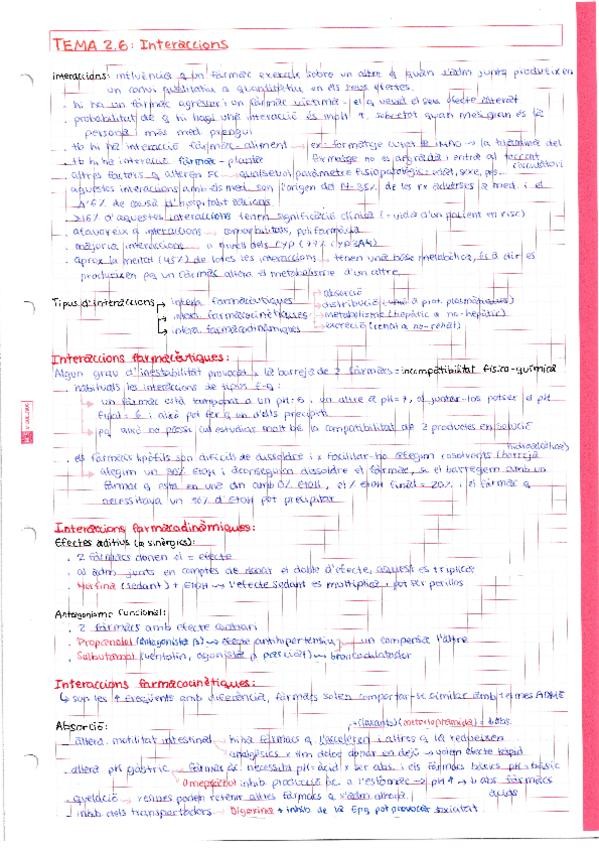 TEMA 2.6: Interaccions
interaccions: influència q un fàrmac exerceix sobre un altre q quan s'adm junts produeixen
un canvi qualitatiu o quantitatiu en els seus efectes.
· hi ha un fàrmac agressor i un fàrmac víctima - el q veurà el seu efecte alterat
· probabilitat de q hi hagi una interacció és molt ↑, sobretot quan més gran és la
persona i més med prengui
· tb hi ha interacció fàrmac-aliment → ex: formatge curat + IMAO → la tiramina del
formatge no es degrada i entra al torrent circulatori
· tb hi ha interacció fàrmac - planta
· altres factors q alteren FC → qualsevol paràmetre fisiopatològic: edat, sexe, pes..
· aquestes interaccions amb els med són l'origen del 25% de les rx adverses a med i el
de causa d'hospitalitzacions
d'aquestes interaccions tenen significació clínica (= vida d'un pacient en risc)
· afavoreix q interaccions → comorbiditats, polifarmàcia
· majoria interaccions → a nivell dels CYP (CYP3A4)
· aprox la meitat (45%) de totes les interaccions tenen una base metabòlica, és a dir es
produeixen pq un fàrmac altera el metabolisme d'un altre
Tipus d'interaccions → interac farmacèutiques
→ interac farmacocinètiques
→ interac farmacodinàmiques
absorció
distribució (unió a prot. plasmàtiques)
metabolisme (hepàtic o no-hepàtic)
excreció (renal o no-renal)
Interaccions farmacèutiques:
Algun grau d'inestabilitat provocat x la barreja de 2 fàrmacs = incompatibilitat físico-química
habituals les interaccions de tipus F-Q:
un fàrmac està tamponat a un pH=5, un altre a pH=7, al juntar-los potser el pH
final = 6 i això pot fer q un d'ells precipiti
pq això no passi cal estudiar molt bé la compatibilitat de 2 productes en solució
· els fàrmacs lipòfils són difícils de dissoldre i x facilitar-ho afegim cosolvents (barreja hidroalcohòlica)
afegim un 30% EtOH i aconseguim dissoldre el fàrmac, si el barregem amb un
fàrmac q està en una din amb 0% EtOH, el % EtOH final = 20% i el fàrmac q
necessitava un 30% d'EtOH pot precipitar
Interaccions farmacodinàmiques:
Efectes aditius (o sinèrgics):
· 2 fàrmacs donen el = efecte
· al adm junts en comptes de donar el doble d'efecte, aquest es triplica
· Morfina (sedant) + EtOH → l'efecte sedant es multiplica i pot ser perillós
Antagonisme funcional:
· 2 fàrmacs amb efecte contrari
· Propranolol (antagonista β) → efecte antihipertensiu → un compensa l'altre
· Salbutamol (ventolin, agonista β parcial) → broncodilatador
Interaccions farmacocinètiques:
↳ són les + freqüents amb diferència, fàrmacs solen comportar-se similar amb termes ADME
Absorció:
(laxants) (metoclopramida) → ↓ abs.
· altera. motilitat intestinal → hi ha fàrmacs q l'acceleren i altres q la redueixen
analgèsics x tim deleg donar en dejú → volem efecte ràpid
· altera pH gàstric → fàrmac àc. necessita pH=àcid x ser abs i els fàrmacs bàsics pH=bàsic
omeprazol inhib producció àc. a l'estómac → pH ↑ → ↓ abs fàrmacs àcids
· quelació → resines poden retenir altres fàrmacs q s'adm alhora
· inhib dels transportadors → Digoxina + inhib de la Pgp pot provocar toxicitat